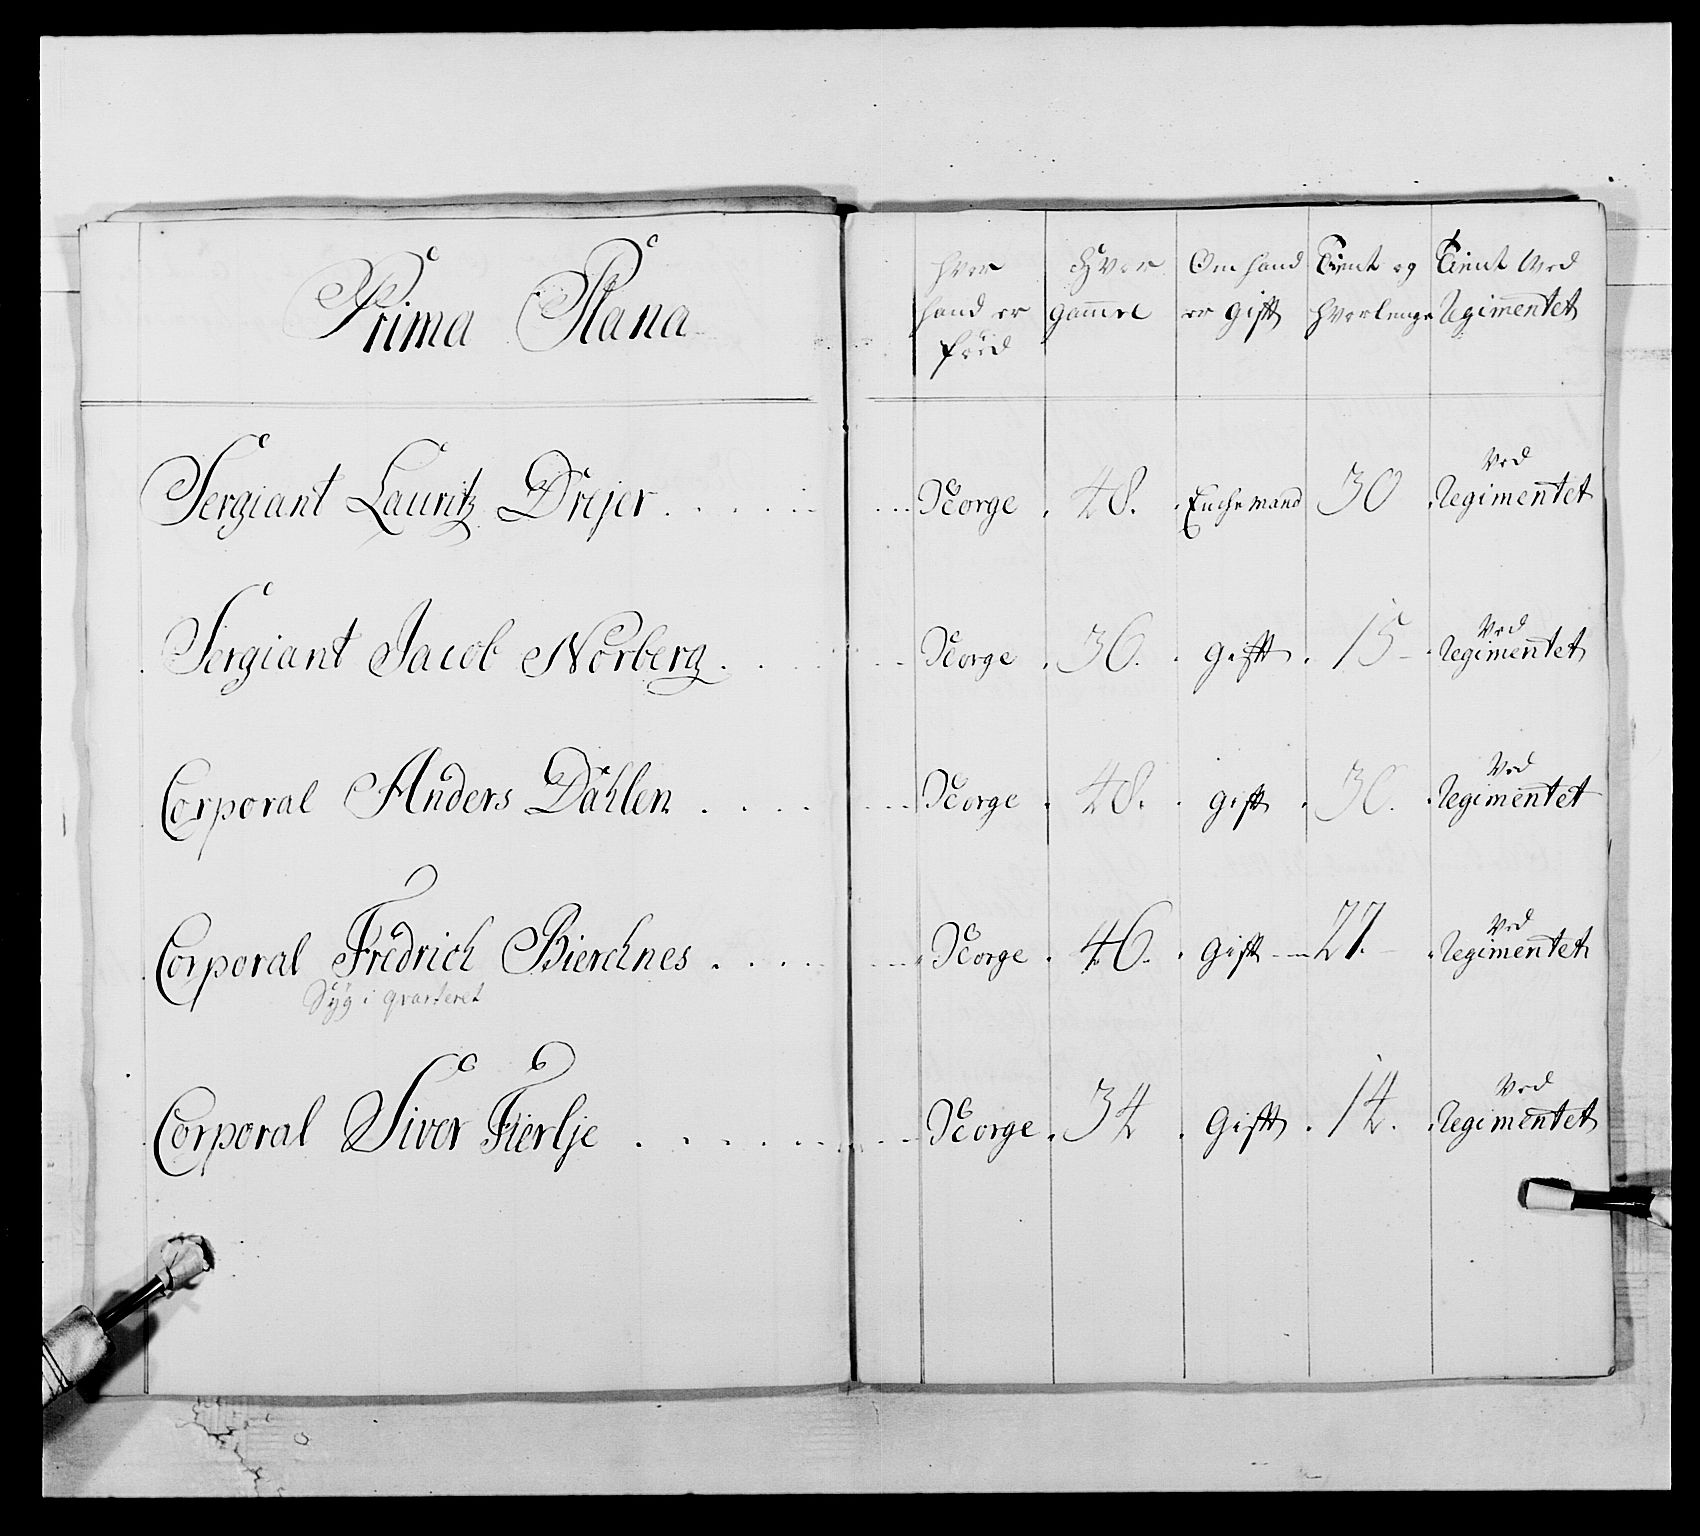 Prima Plana
hvor
hand er
född
Hvor
gam̄el
Om hand
er gift
Tient og
hvorlenge
Tient Ved
Regim̄entet
Sergiant Lauritz Drejer
Norge
48.
Enche mand
30
Ved
Regimen̄tet
Sergiant Jacob Norberg
Norge
36.
gift
15
Ved
Regimen̄tet
Corporal Anders Dahlen
Norge
48.
gift
30.
Ved
Regimen̄tet
Corporal Fredrich Bierchnes
Norge
46.
gift
27.
Ved
Regimen̄tet
Syg i qvarteret
Corporal Siver Fierlje
Norge
34
Gift
14.
Ved
Regimen̄tet